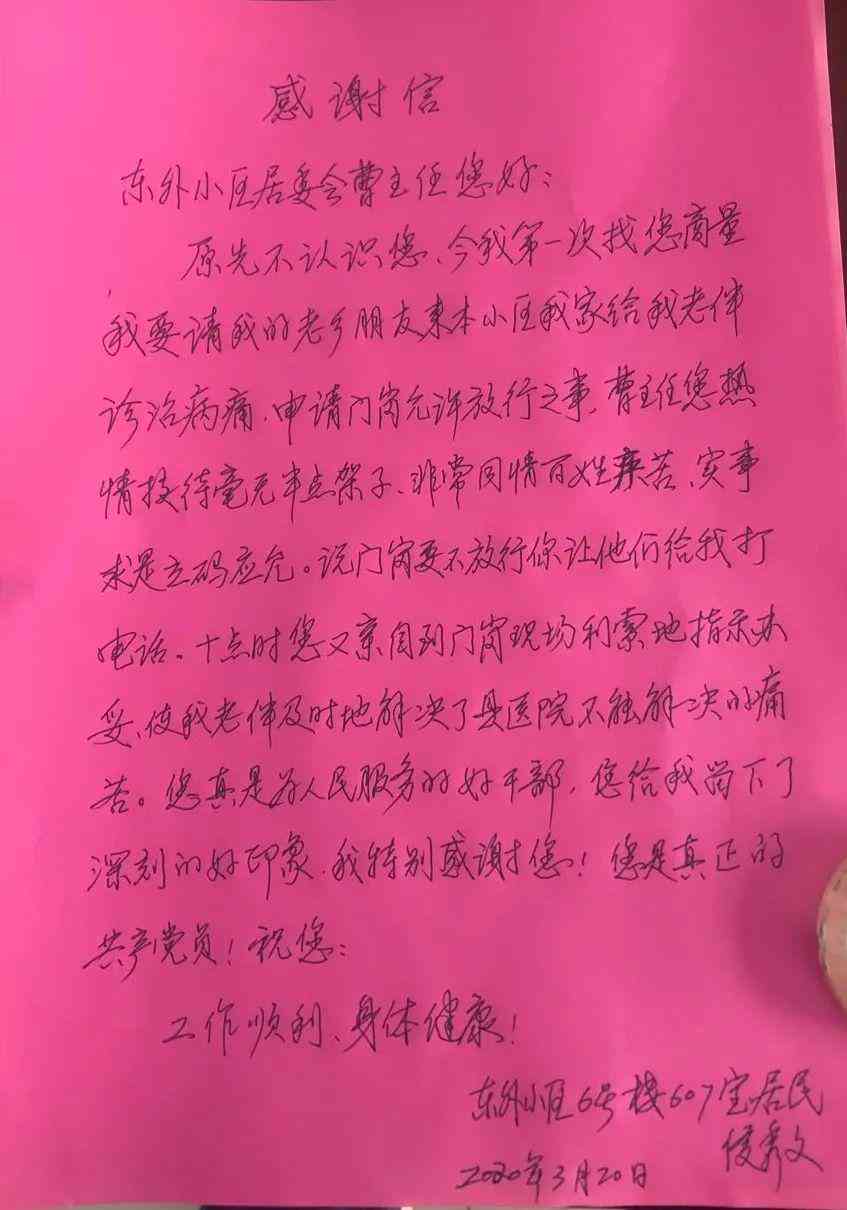 感谢信
东外小区居委会曹主任您好：
原先不认识您、今我第一次找您商量
我要请我的老乡朋友来本小区我家给我老伴
诊治病痛、申请门岗允许放行之事，曹主任您热
情接待毫无半点架子、非常同情百姓疾苦、实事
求是立码应允。说门岗要不放行你让他们给我打
电话。十点时您又亲自到门岗现场利索地指示办
妥、使我老伴及时地解决了县医院不能解决的痛
苦。您真是为人民服务的好干部，您给我留下了
深刻的好印象、我特别感谢您！您是真正的
共产党员！祝您：
工作顺利、身体健康！
东外小区6号楼607室居民
侯秀文
2020年3月20日